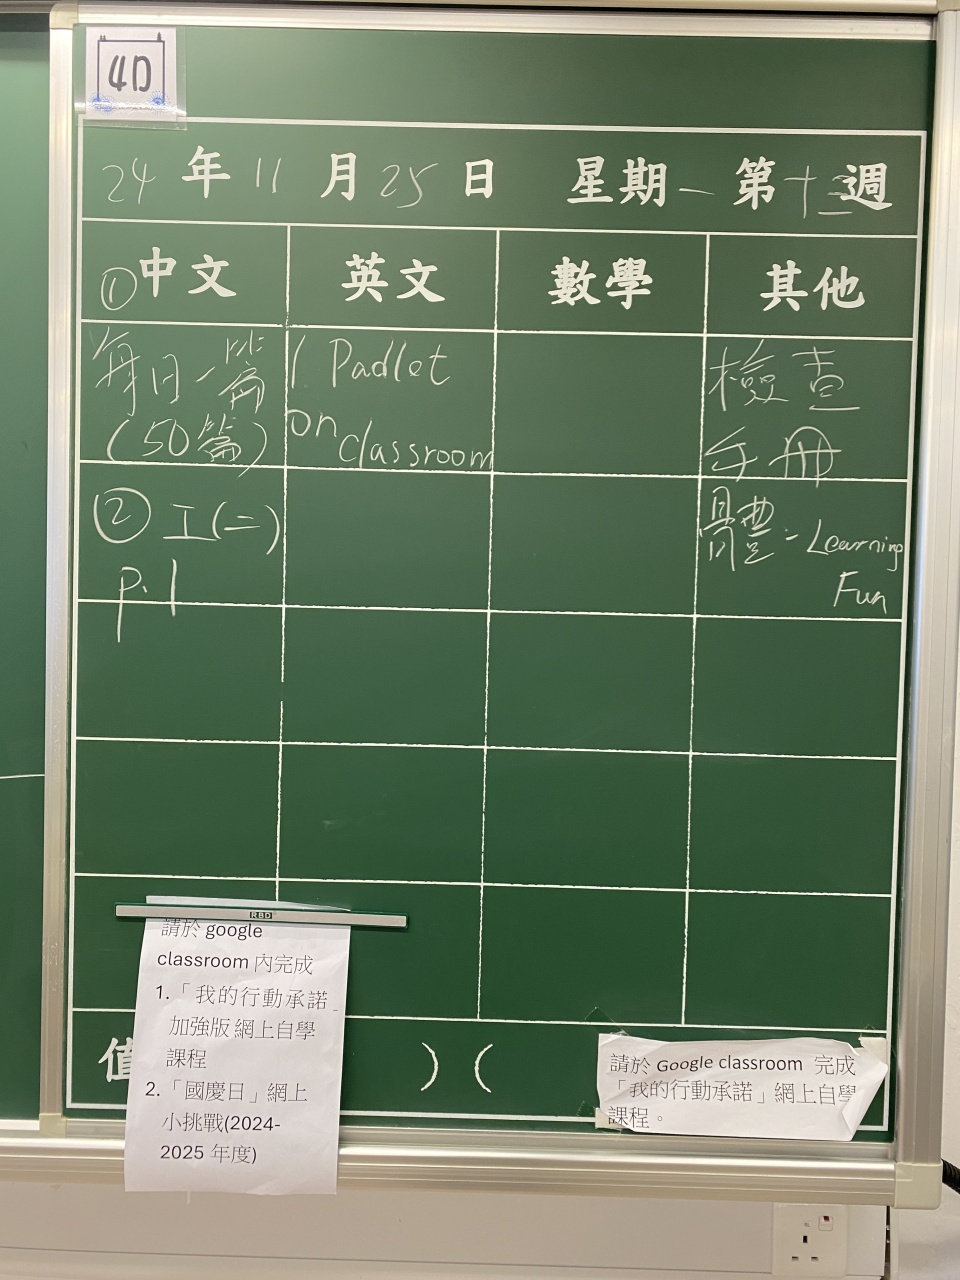 4D
24年11月25日 星期一 第十三週
①中文 英文 數學 其他
每日一篇
(50篇)
② 工(二)
p.1
1. Padlet
on classroom
檢查
手冊
體 - Learning
Fun
RBD
請於 google
classroom 內完成
1.「我的行動承諾」
加強版 網上自學
課程
2.「國慶日」網上
小挑戰(2024-
2025 年度)
值
) (
請於 Google classroom 完成
「我的行動承諾」網上自學
課程。